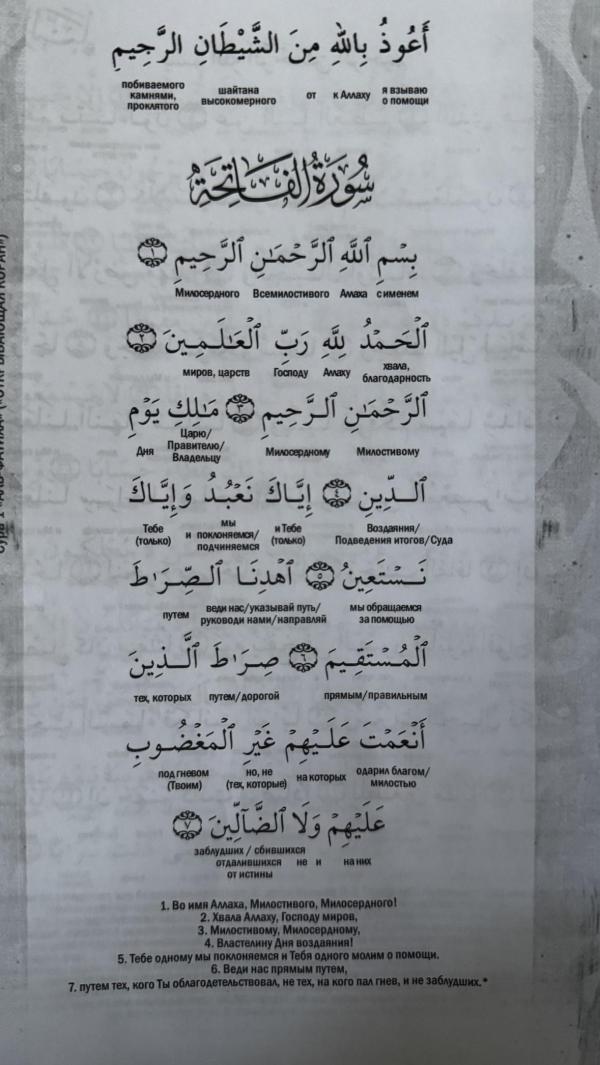 أَعُوذُ بِاللهِ مِنَ الشَّيْطَانِ الرَّجِيمِ
я взываю о помощи к Аллаху от шайтана высокомерного побиваемого камнями, проклятого
سُورَةُ الفَاتِحَةِ
بِسْمِ ٱللَّهِ ٱلرَّحْمَـٰنِ ٱلرَّحِيمِ ١
с именем Аллаха Всемилостивого Милосердного
ٱلْحَمْدُ لِلَّهِ رَبِّ ٱلْعَـٰلَمِينَ ٢
хвала, благодарность Аллаху Господу миров, царств
ٱلرَّحْمَـٰنِ ٱلرَّحِيمِ ٣ مَـٰلِكِ يَوْمِ
Милостивому Милосердному Царю/ Правителю/ Владельцу Дня
ٱلدِّينِ ٤ إِيَّاكَ نَعْبُدُ وَإِيَّاكَ
Воздаяния/ Подведения итогов/Суда Тебе (только) мы поклоняемся/ подчиняемся и и Тебе (только)
نَسْتَعِينُ ٥ ٱهْدِنَا ٱلصِّرَٰطَ
мы обращаемся за помощью веди нас/указывай путь/ руководи нами/направляй путем
ٱلْمُسْتَقِيمَ ٦ صِرَٰطَ ٱلَّذِينَ
прямым/правильным путем/дорогой тех, которых
أَنْعَمْتَ عَلَيْهِمْ غَيْرِ ٱلْمَغْضُوبِ
одарил благом/ милостью на которых но, не (тех, которые) под гневом (Твоим)
عَلَيْهِمْ وَلَا ٱلضَّآلِّينَ ٧
на них и не заблудших / сбившихся отдалившихся от истины
1. Во имя Аллаха, Милостивого, Милосердного!
2. Хвала Аллаху, Господу миров,
3. Милостивому, Милосердному,
4. Властелину Дня воздаяния!
5. Тебе одному мы поклоняемся и Тебя одного молим о помощи.
6. Веди нас прямым путем,
7. путем тех, кого Ты облагодетельствовал, не тех, на кого пал гнев, и не заблудших.*